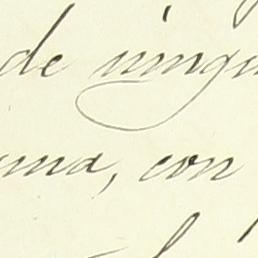 de ningu
una, con